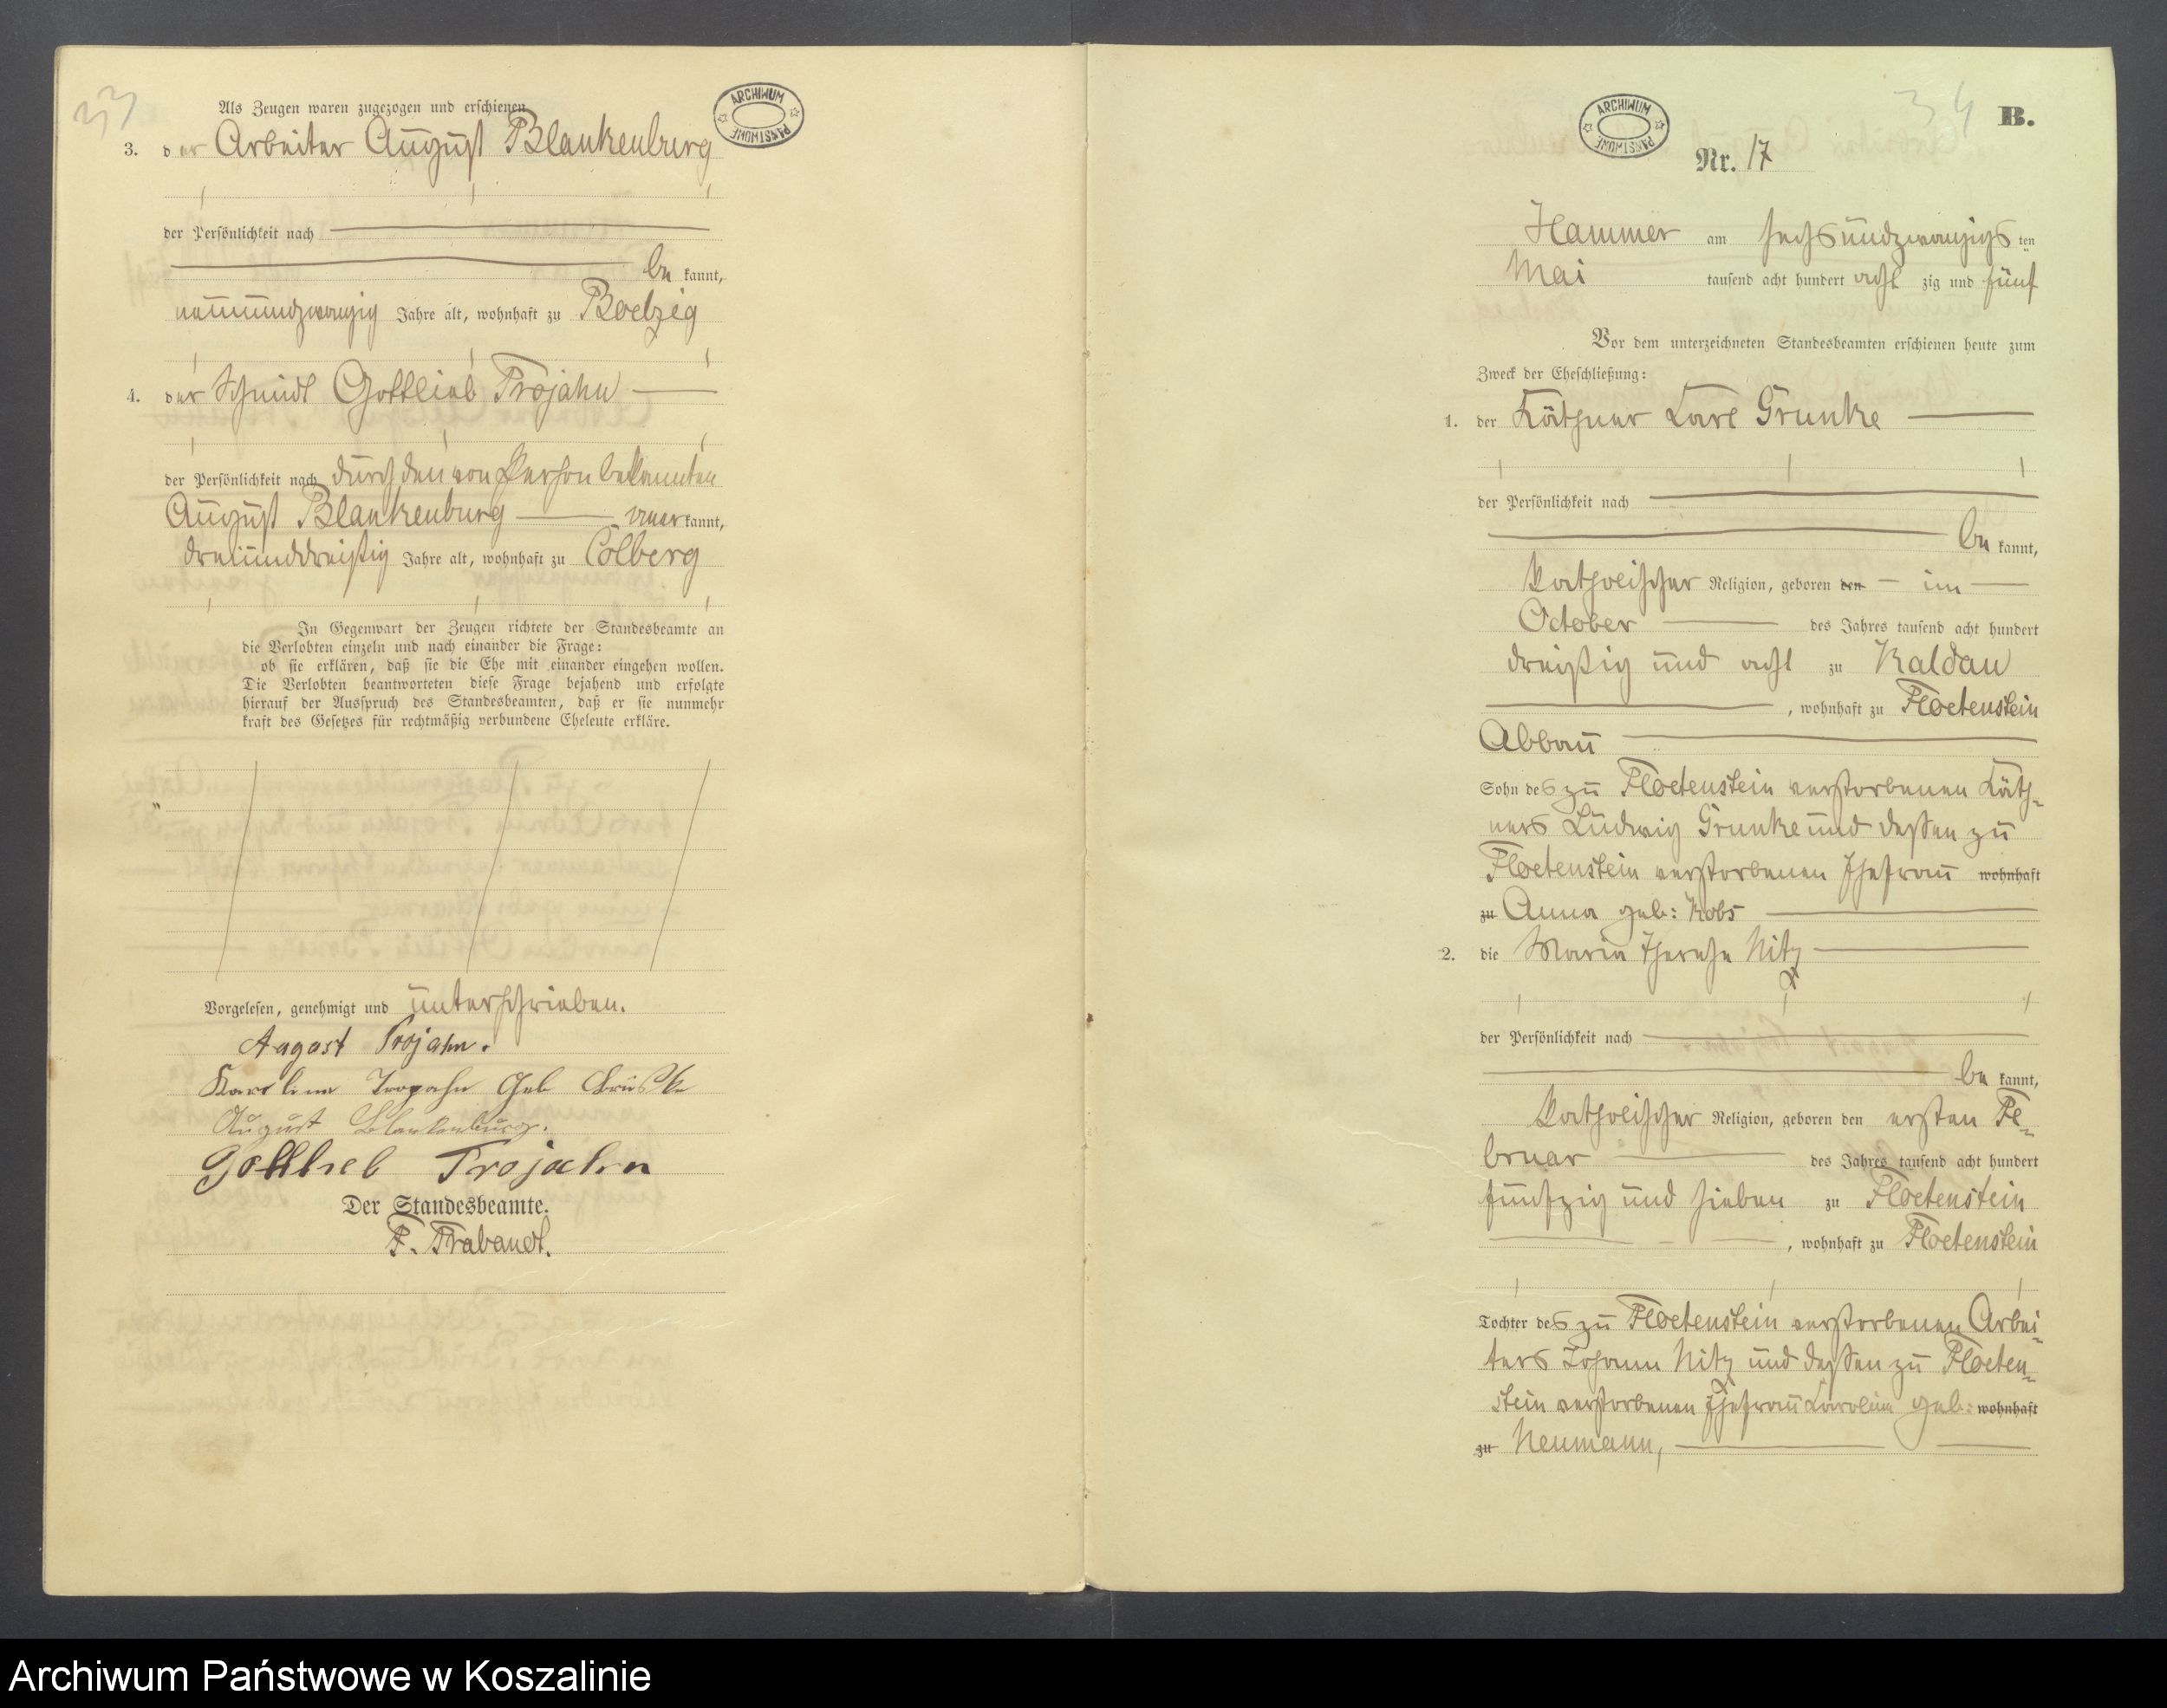 33
ARCHIWUM PAŃSTWOWE
Als Zeugen waren zugezogen und erschienen
3. der Arbeiter August Blankenburg
der Persönlichkeit nach
be kannt,
neunundzwanzig Jahre alt, wohnhaft zu Boelzig
4. der Schmidt Gottlieb Trojahn
der Persönlichkeit nach durch den von Person bekannten
August Blankenburg aner kannt,
dreiunddreißig Jahre alt, wohnhaft zu Colberg
In Gegenwart der Zeugen richtete der Standesbeamte an
die Verlobten einzeln und nach einander die Frage:
ob sie erklären, daß sie die Ehe mit einander eingehen wollen.
Die Verlobten beantworteten diese Frage bejahend und erfolgte
hierauf der Ausspruch des Standesbeamten, daß er sie nunmehr
kraft des Gesetzes für rechtmäßig verbundene Eheleute erkläre.
Vorgelesen, genehmigt und unterschrieben.
August Trojahn.
Karoline Trojahn Geb
August Blankenburg.
Gottlieb Trojahn
Der Standesbeamte.
F. Trabandt.
34
B.
ARCHIWUM PAŃSTWOWE
Nr. 17
Hammer am sechsundzwanzigs ten
Mai tausend acht hundert acht zig und fünf
Vor dem unterzeichneten Standesbeamten erschienen heute zum
Zweck der Eheschließung:
1. der Käthner Carl Grunke
der Persönlichkeit nach
be kannt,
katholischer Religion, geboren den im
October des Jahres tausend acht hundert
dreißig und acht zu Kaldau
, wohnhaft zu Floetenstein
Abbau
Sohn des zu Floetenstein verstorbenen Käth-
ners Ludwig Grunke und dessen zu
Floetenstein verstorbenen Ehefrau wohnhaft
zu Anna geb: Kobs
2. die Maria Therese Nitz
der Persönlichkeit nach
be kannt,
katholischer Religion, geboren den ersten Fe-
bruar des Jahres tausend acht hundert
fünfzig und sieben zu Floetenstein
, wohnhaft zu Floetenstein
Tochter des zu Floetenstein verstorbenen Arbei-
ters Johann Nitz und dessen zu Floeten-
stein verstorbenen Ehefrau Caroline geb: wohnhaft
zu Neumann,
Archiwum Państwowe w Koszalinie